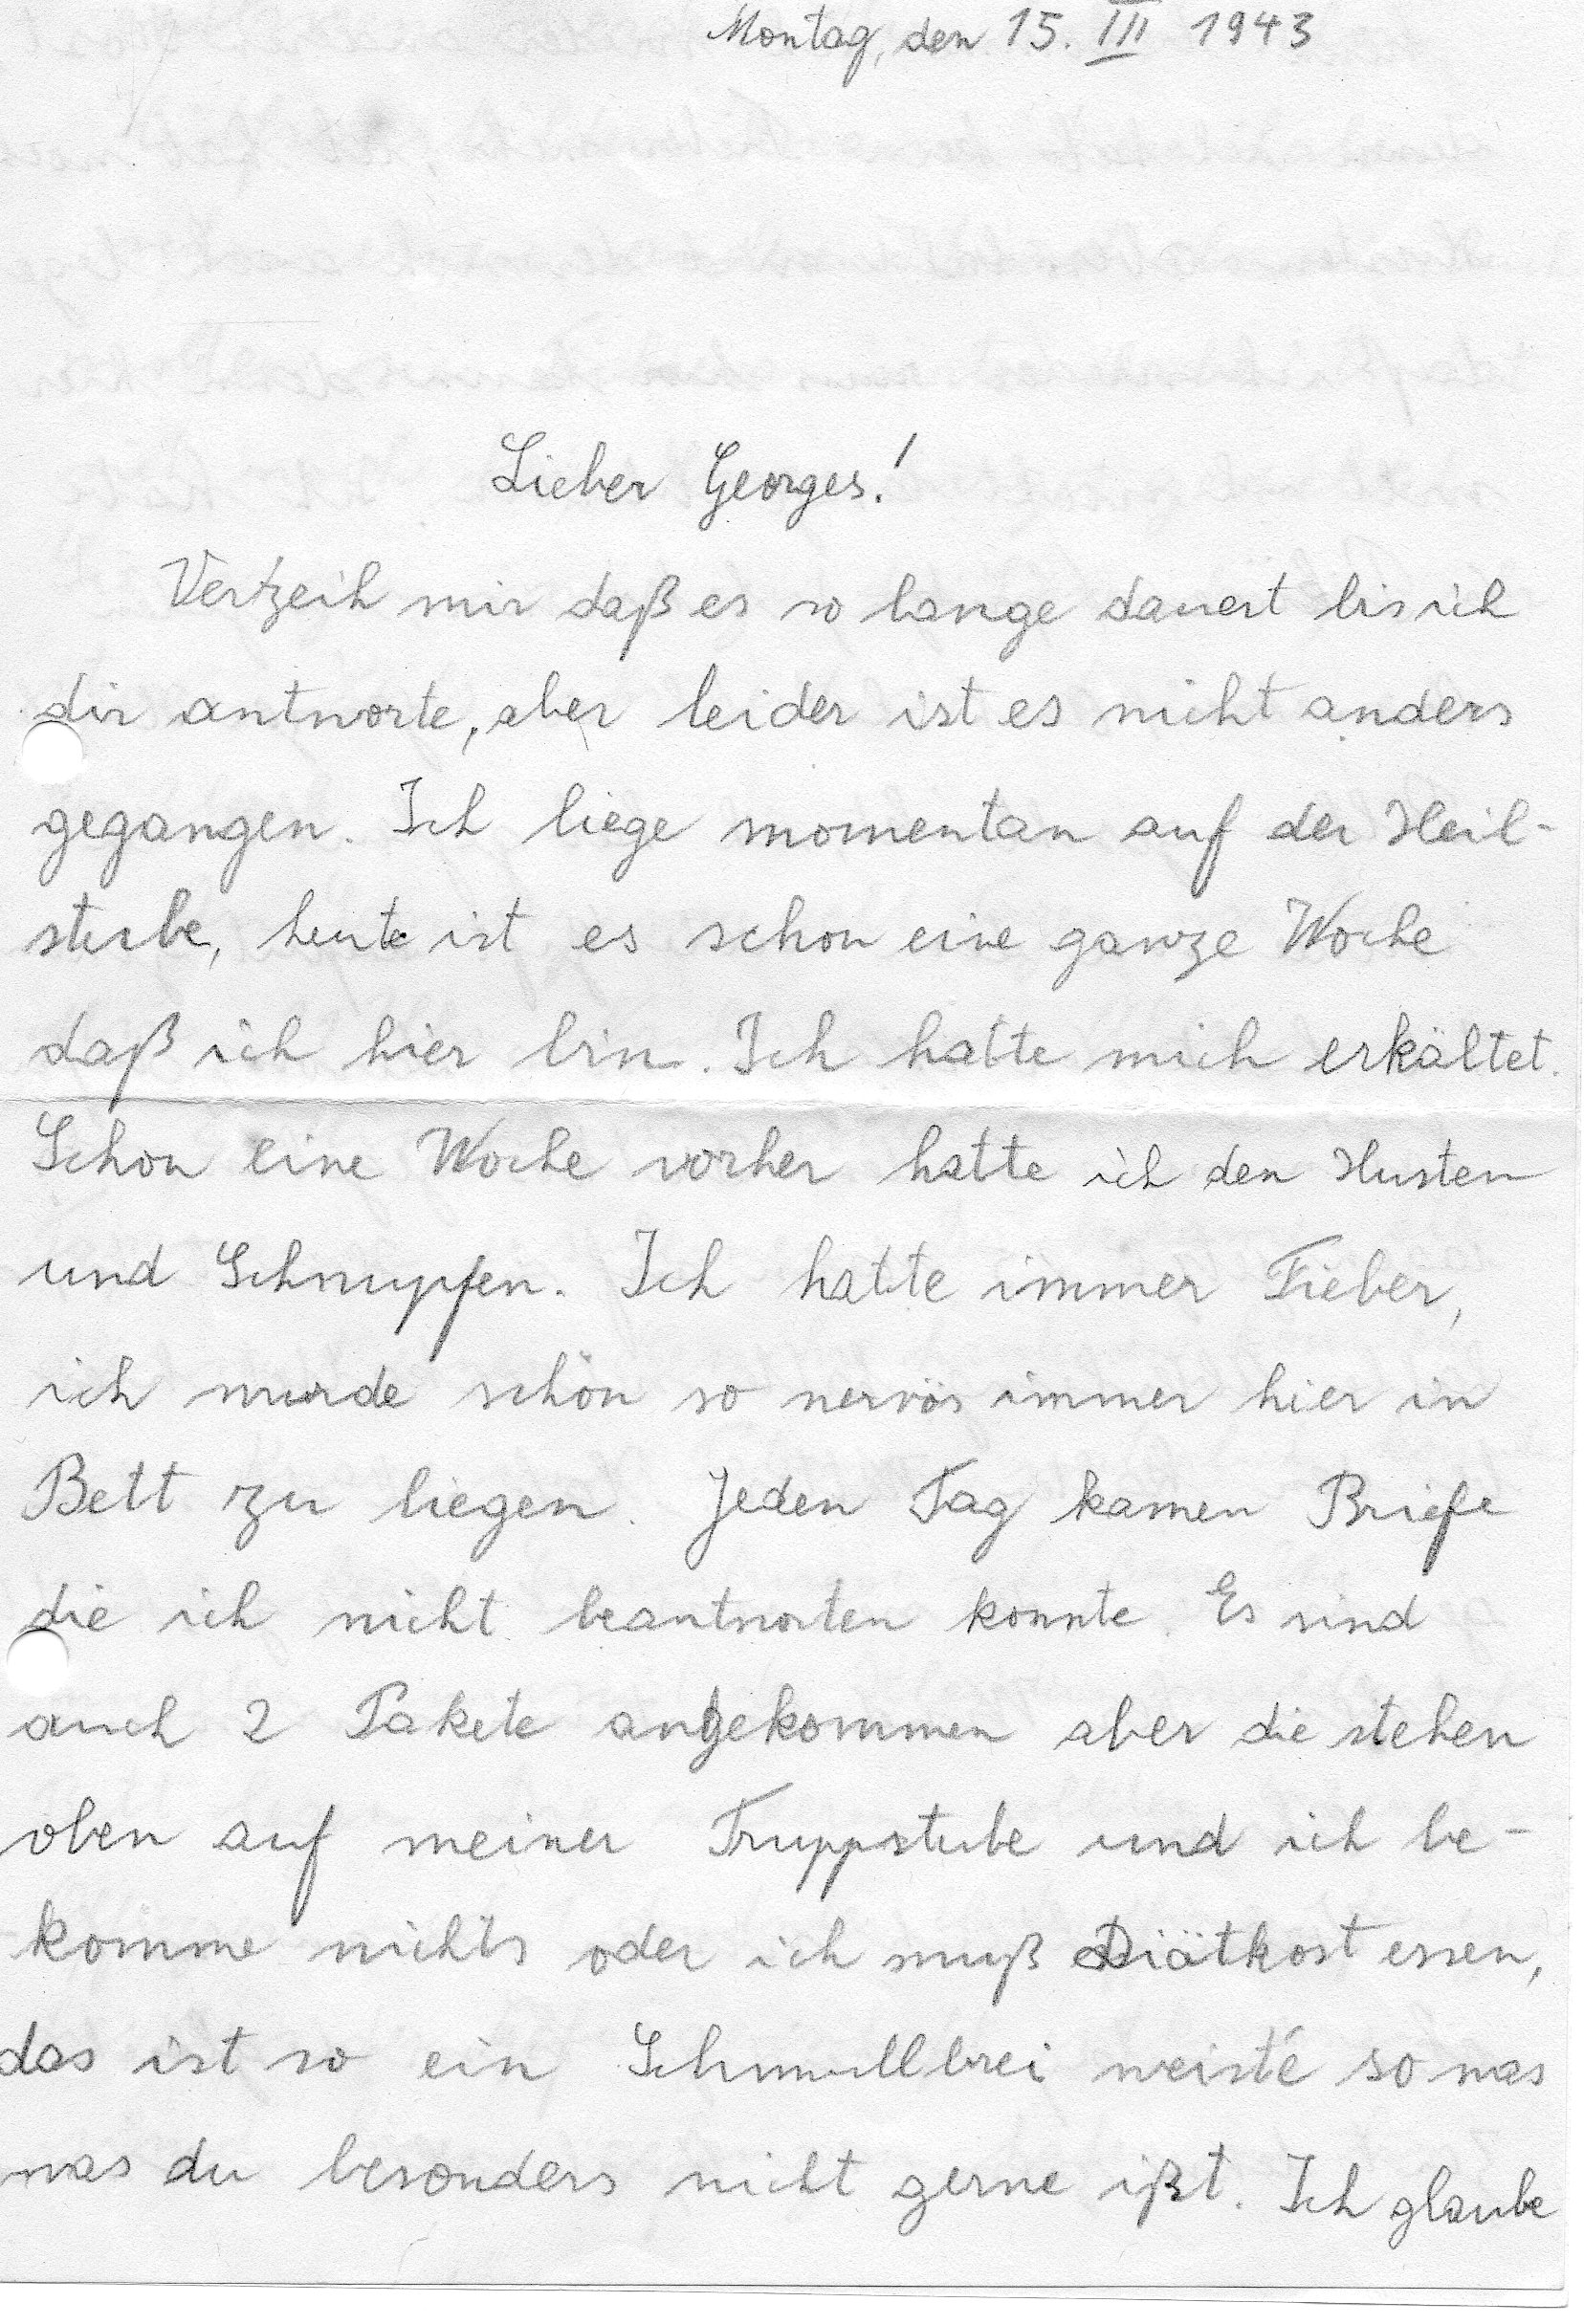 Montag, den 15. III 1943
Lieber Georges!
Verzeih mir daß es so lange dauert bis ich
dir antworte, aber leider ist es nicht anders
gegangen. Ich liege momentan auf der Heil-
stube, heute ist es schon eine ganze Woche
daß ich hier bin. Ich hatte mich erkältet.
Schon eine Woche vorher hatte ich den Husten
und Schnupfen. Ich hatte immer Fieber,
ich wurde schön so nervös immer hier in
Bett zu liegen. Jeden Tag kamen Briefe
die ich nicht beantworten konnte. Es sind
auch 2 Pakete angekommen aber die stehen
oben auf meiner Truppstube und ich be-
komme nichts oder ich muß Diätkost essen,
das ist so ein Schmullbrei weisté so was
was du besonders nicht gerne ißt. Ich glaube